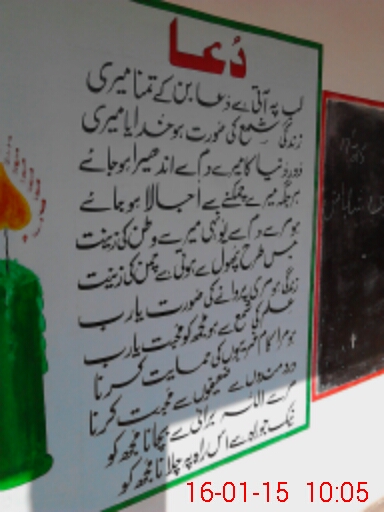 دُعا
لب پہ آتی ہے دعا بن کے تمنا میری
زندگی شمع کی صورت ہو خدایا میری
دور دنیا کا میرے دم سے اندھیرا ہو جائے
ہر جگہ میرے چمکنے سے اُجالا ہو جائے
ہو میرے دم سے یونہی میرے وطن کی زینت
جس طرح پھول سے ہوتی ہے چمن کی زینت
زندگی ہو میری پروانے کی صورت یا رب
علم کی شمع سے ہو مجھ کو محبت یا رب
ہو میرا کام غریبوں کی حمایت کرنا
درد مندوں سے ضعیفوں سے محبت کرنا
میرے اللہ برائی سے بچانا مجھ کو
نیک جو راہ ہے اس راہ پہ چلانا مجھ کو
16-01-15 10:05